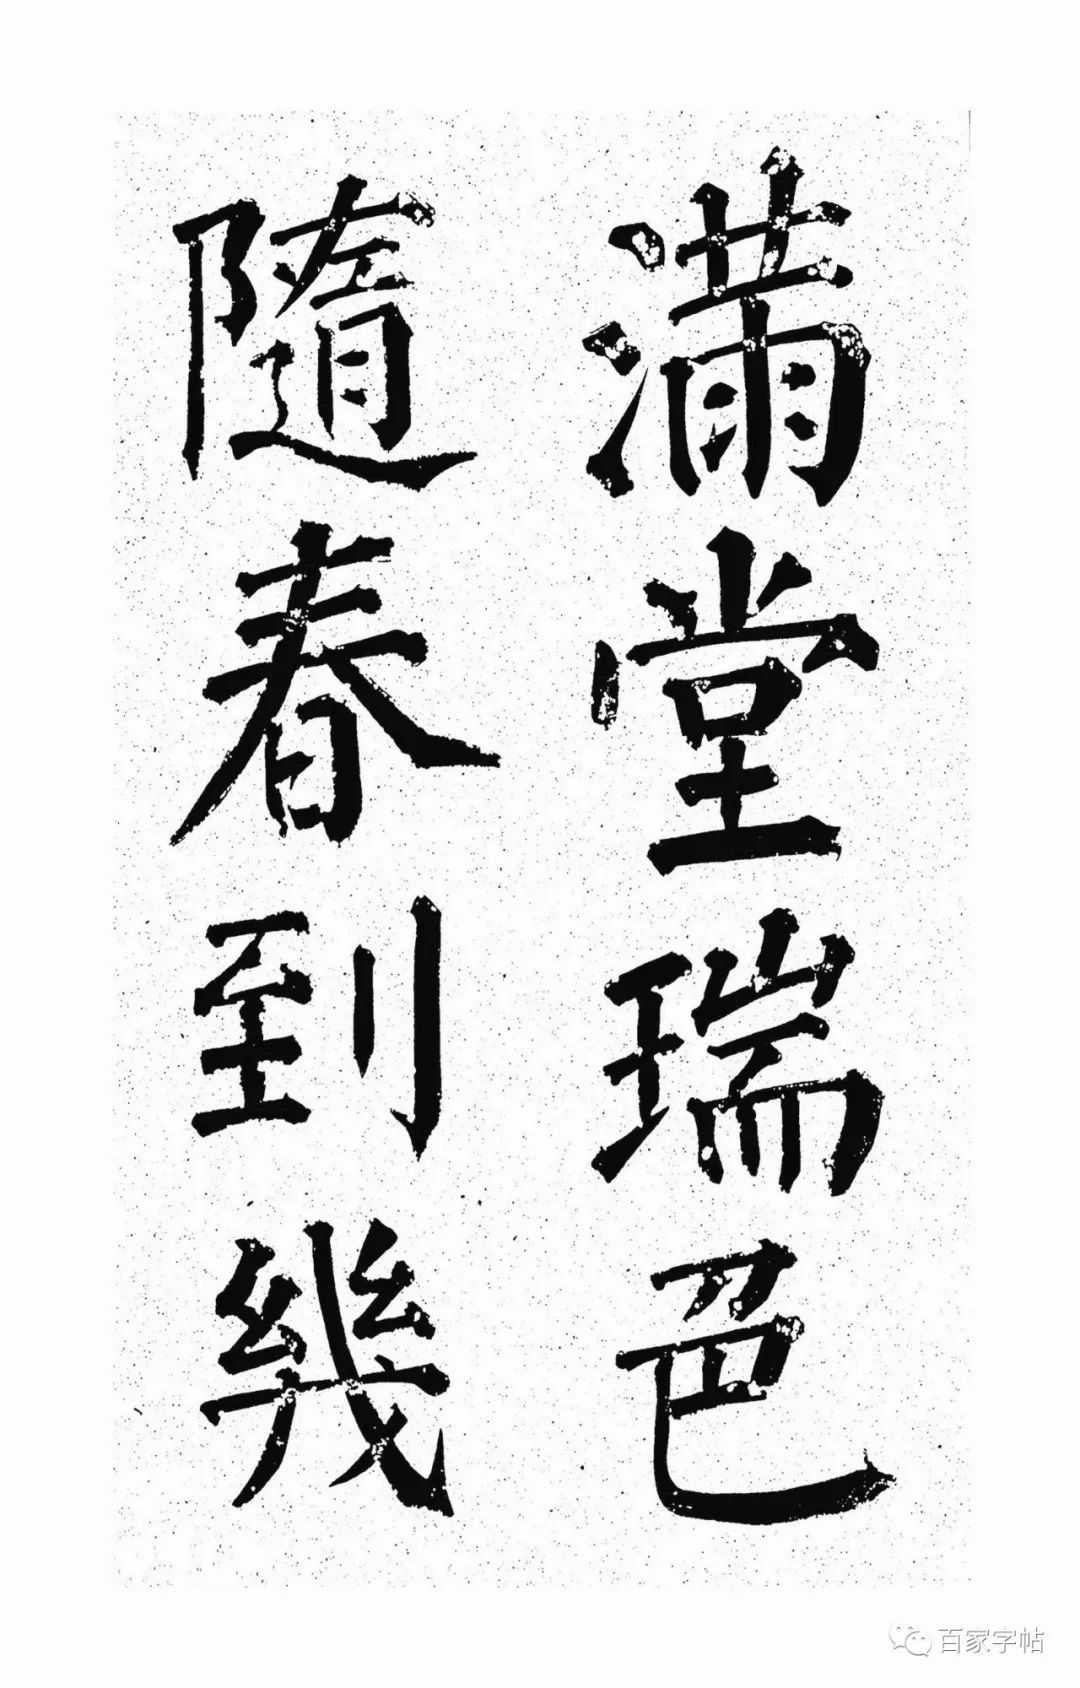 滿堂瑞色
隨春到幾
百家字帖